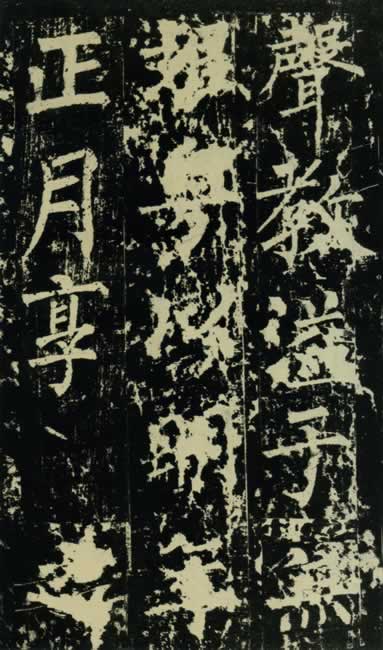 聲教溢于無
粤以明年
正月享